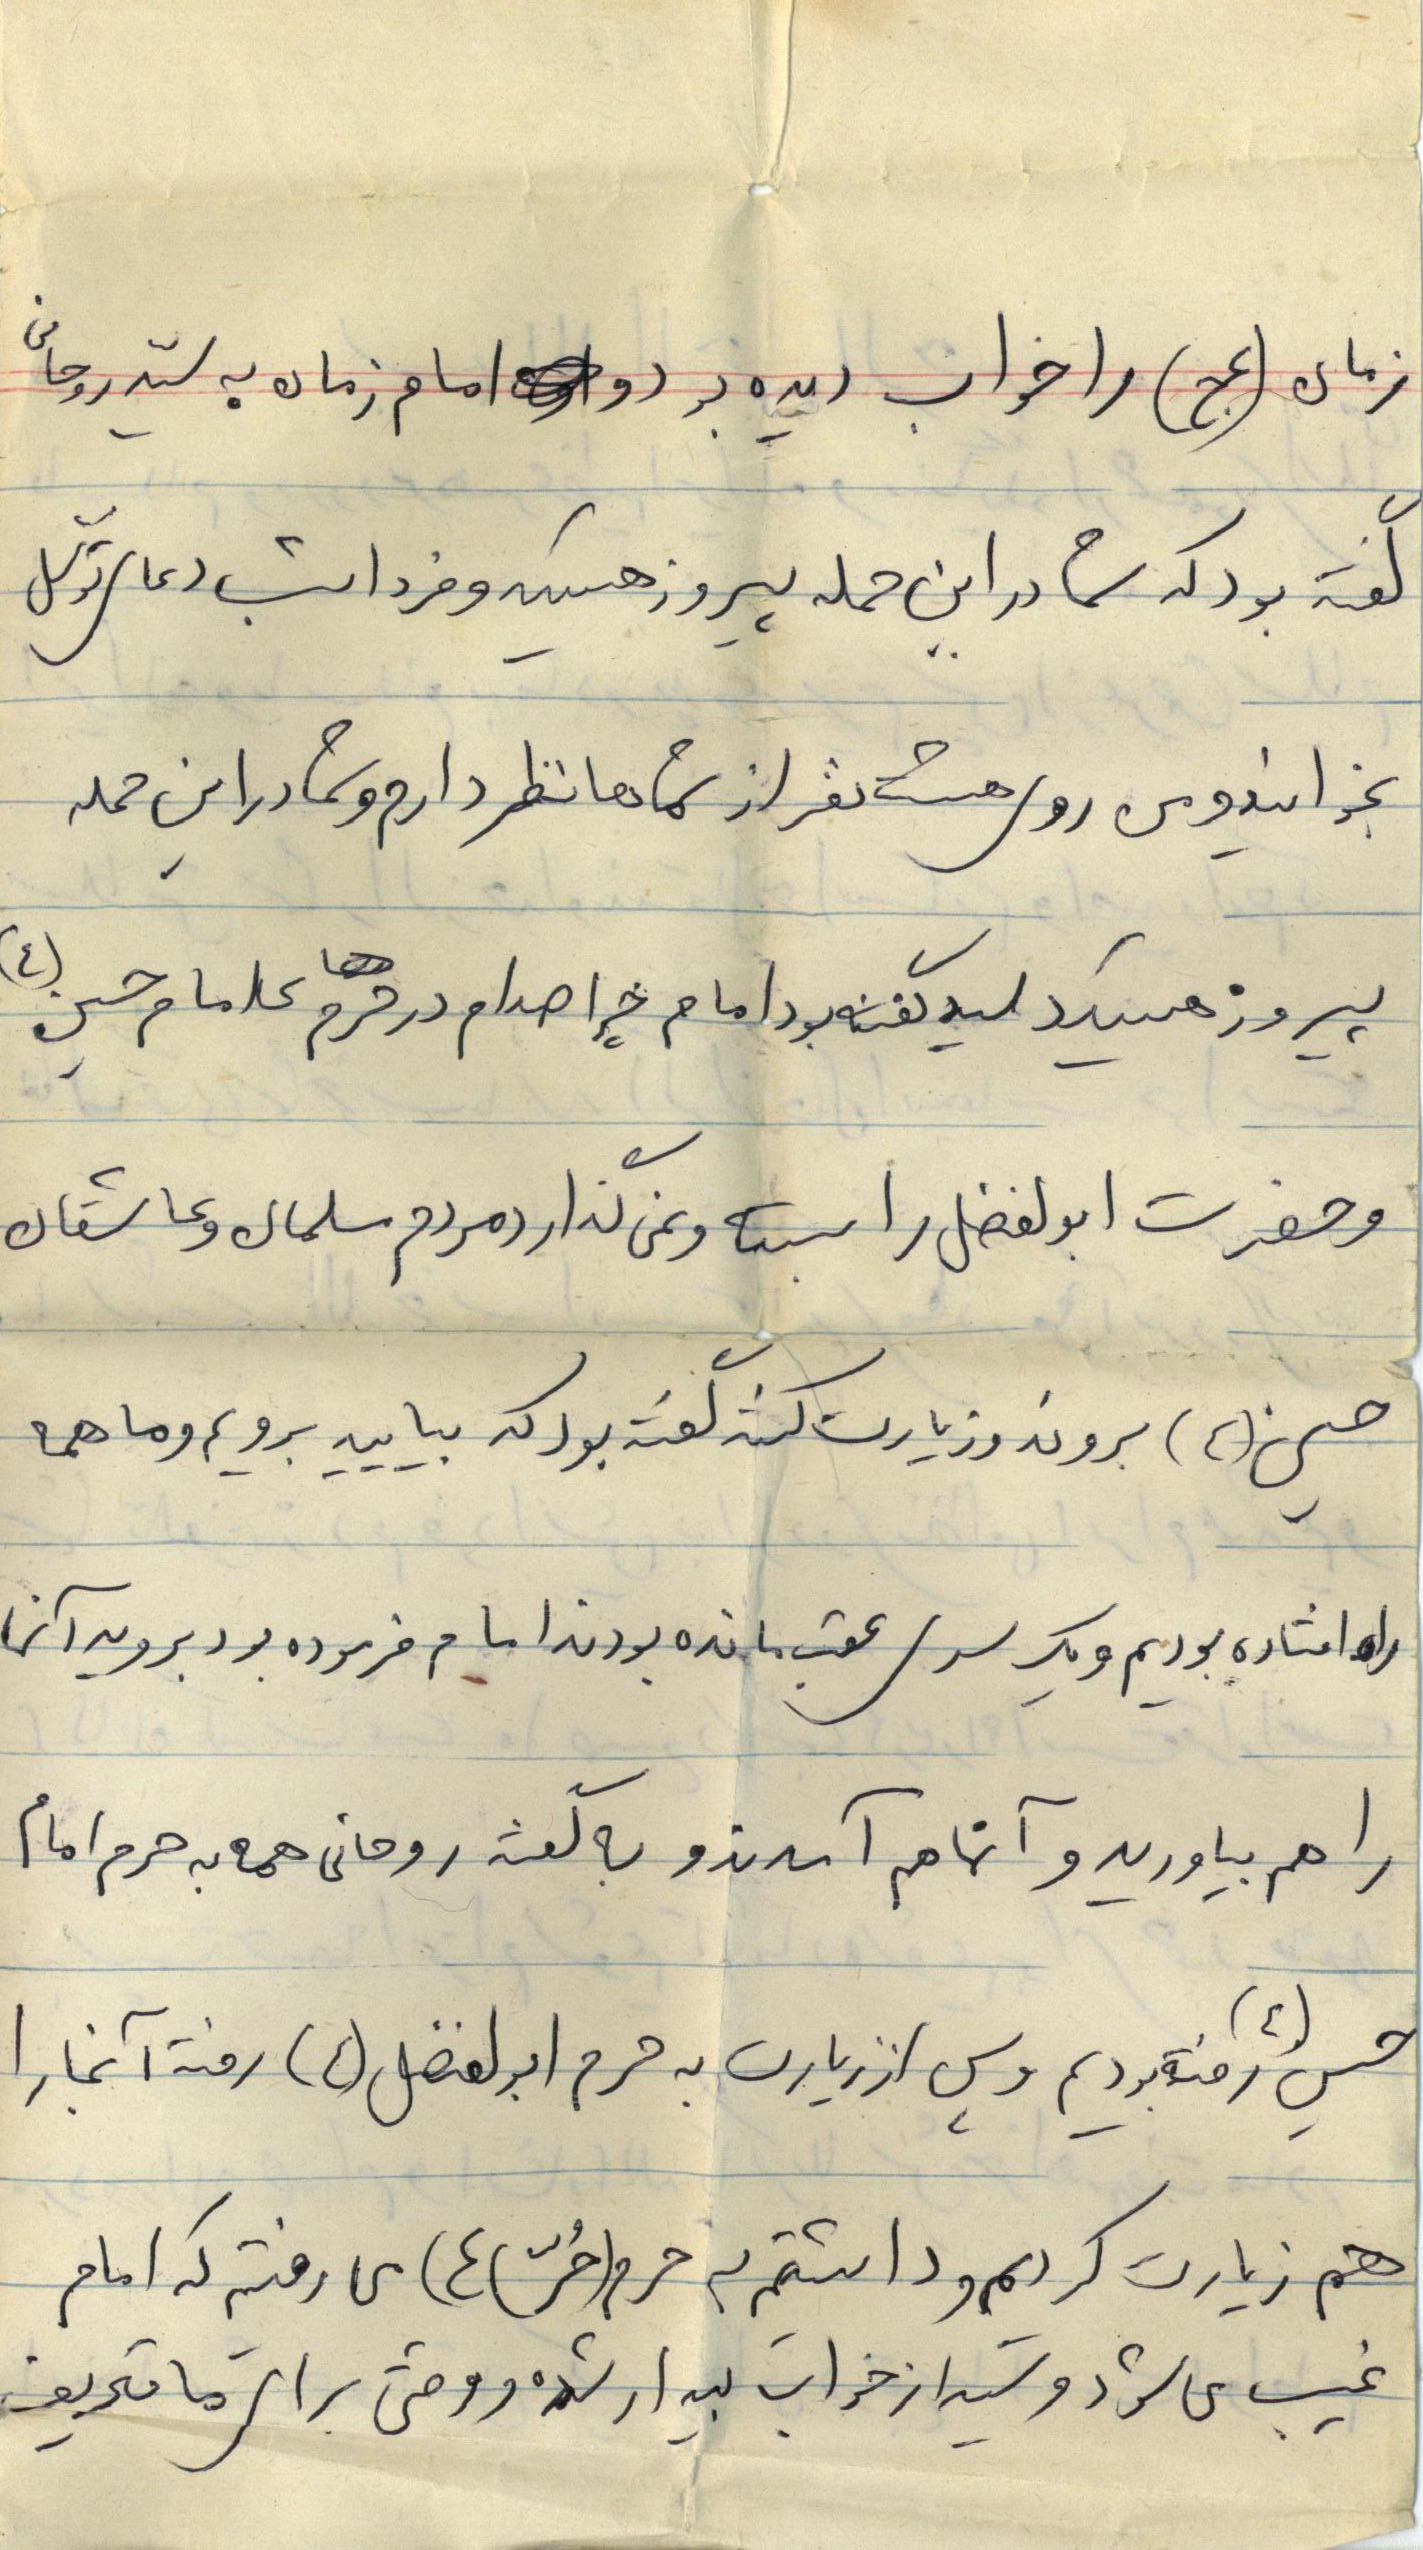 زمان (عج) را خواب دیده بود و امام زمان به سیّد روحانی
گفته بود که شما در این حمله پیروز هستید و فردا شب دعای توسّل
بخوانید و من روی هشت نفر از شماها نظر دارم و شما در این حمله
پیروز هستید سید گفته بود امام چرا صدام در حرم‌های امام حسین (ع)
و حضرت ابولفضل را بسته و نمی‌گذارد مردم مسلمان و عاشقان
حسین (ع) بروند و زیارت کنند گفته بود که بیایید برویم و ما همه
راه افتاده بودیم و یک سری عقب مانده بودند امام فرموده بود بروید آنها
را هم بیاورید و آنها هم آمدند و به گفته روحانی همه به حرم امام
حسین (ع) رفته بودیم و پس از زیارت به حرم ابولفضل (ع) رفته آنجا را
هم زیارت کردیم و داشتیم به حرم (حُرّ ع) می رفتیم که امام
غیب می شود و سیّد از خواب بیدار شده و وقتی برای ما تعریف